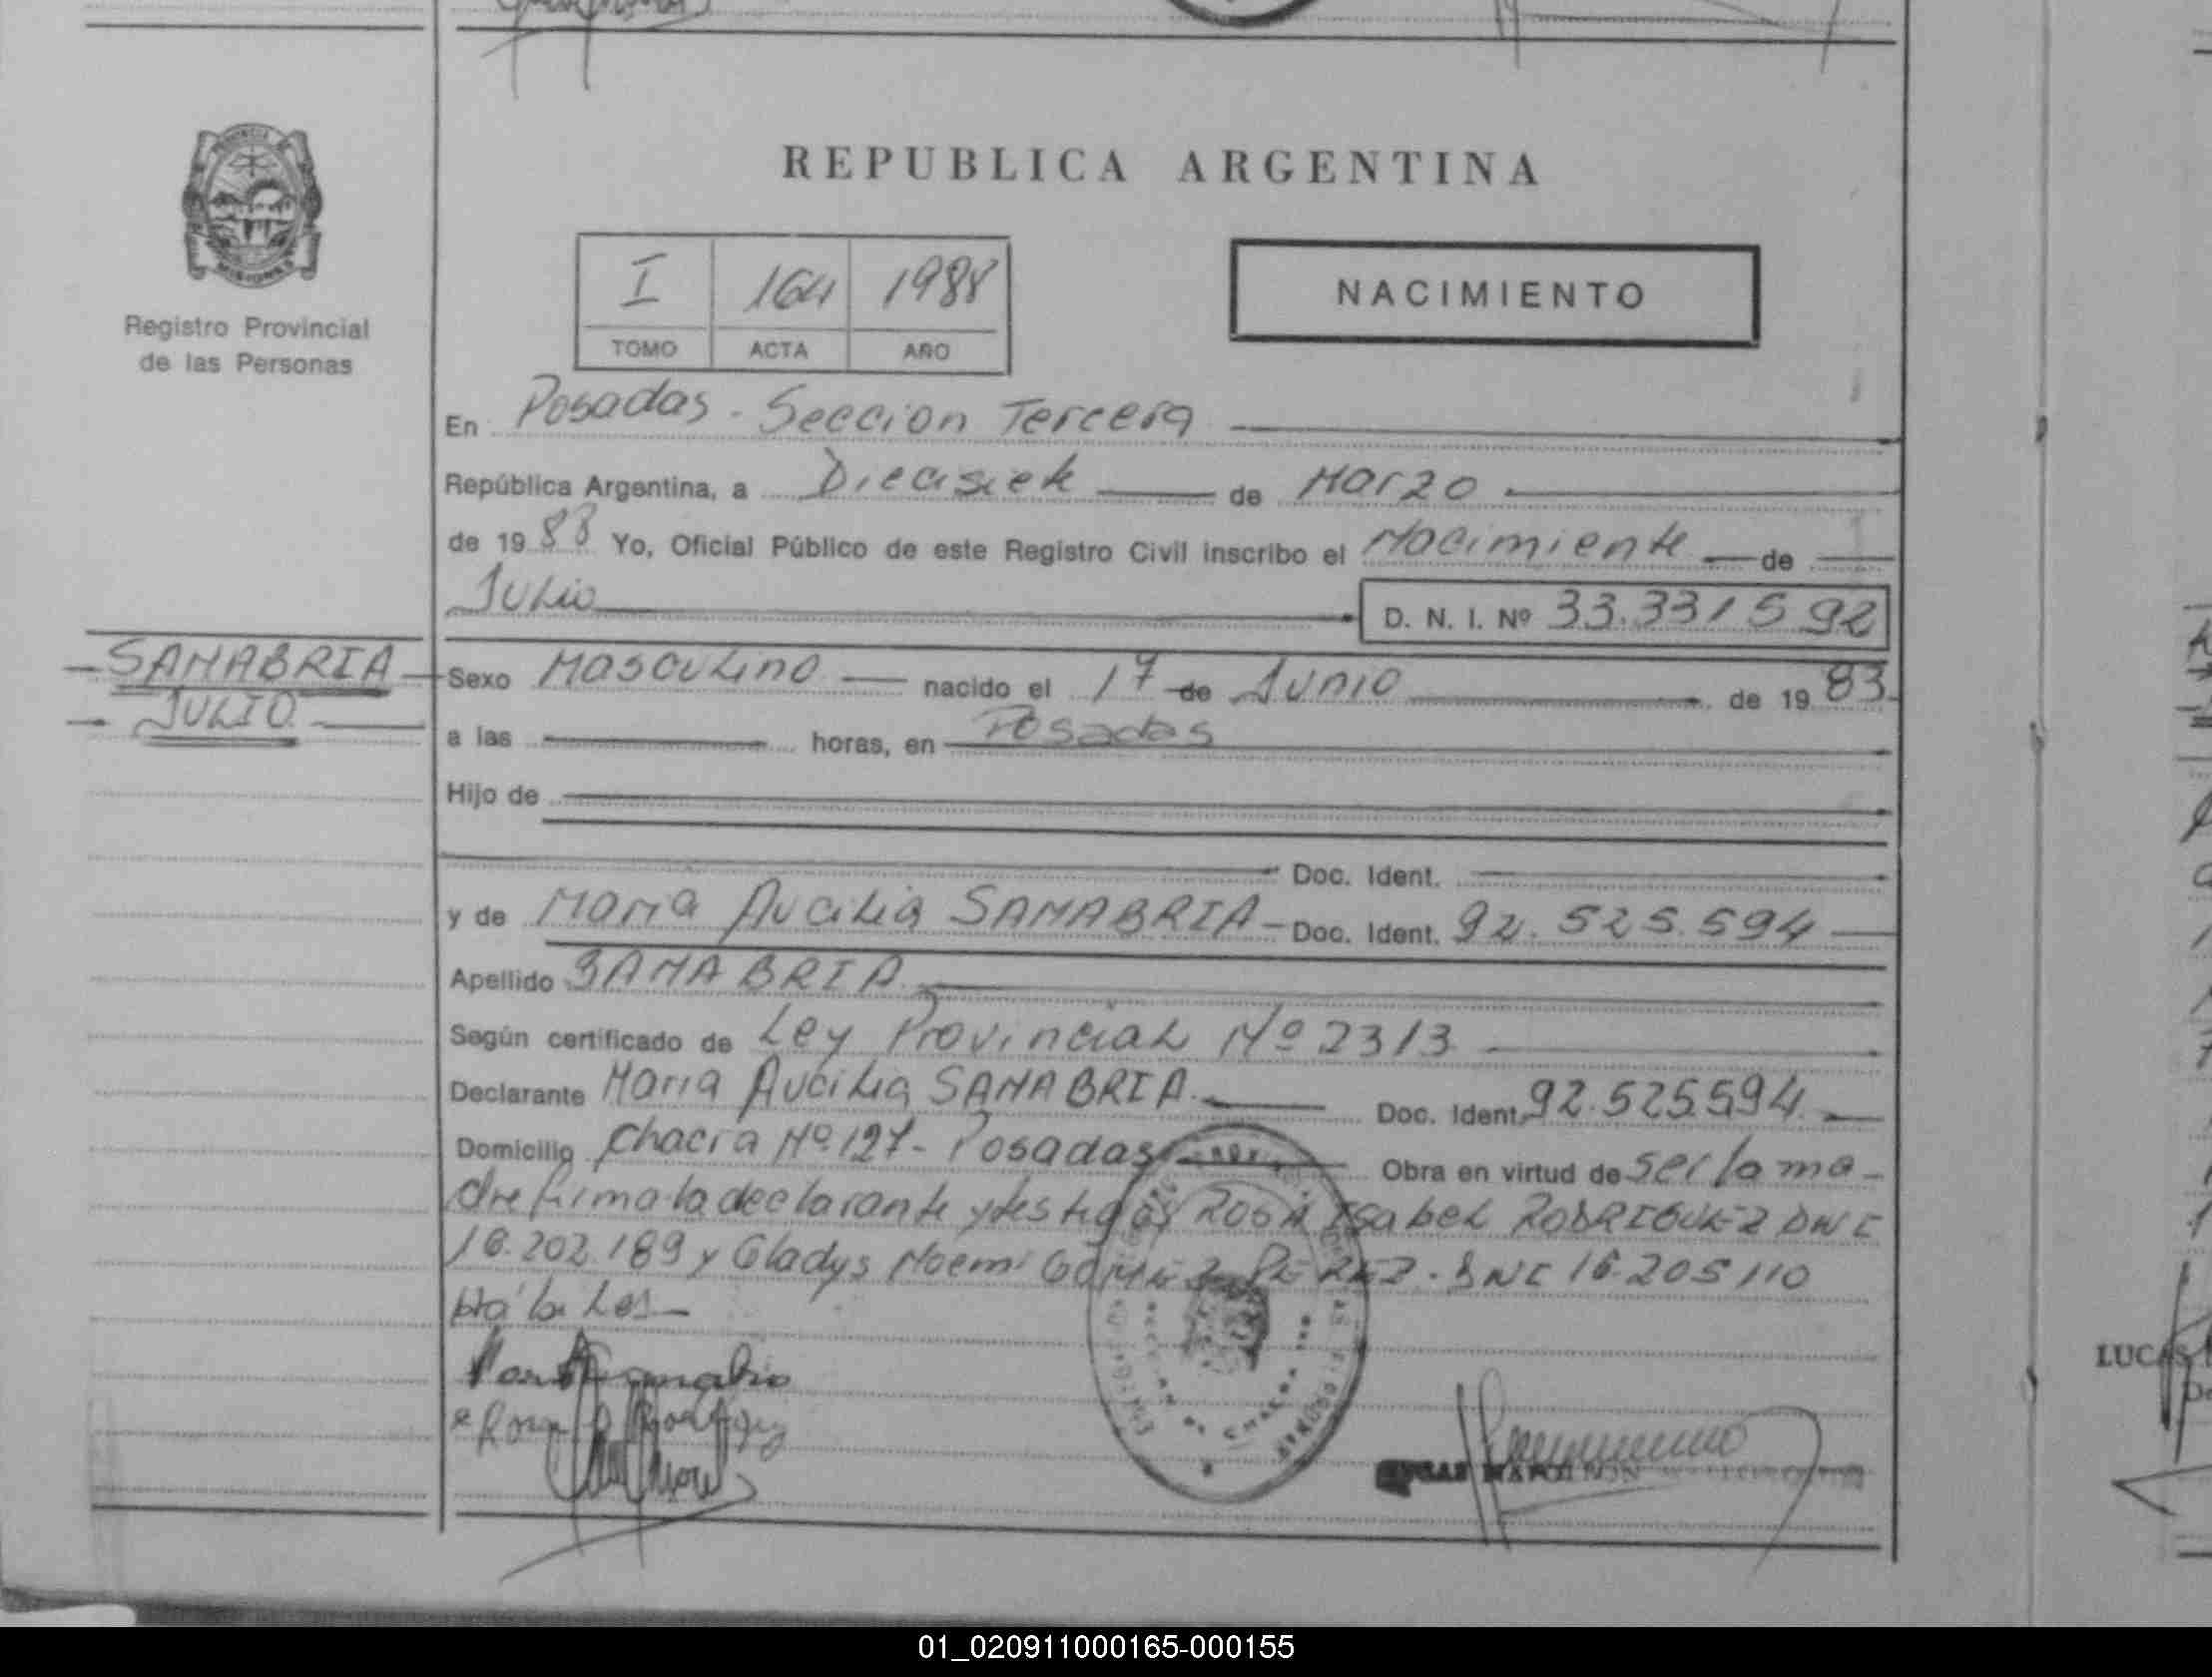 REPUBLICA ARGENTINA
PROVINCIA
MISIONES
Registro Provincial
de las Personas
I 164 1988
TOMO ACTA AÑO
NACIMIENTO
En Posadas - Seccion Tercera
República Argentina, a Diecisiete de Marzo
de 1988 Yo, Oficial Público de este Registro Civil inscribo el Nacimiento de
Julio D. N. I. Nº 33.331592
SANABRIA
JULIO
Sexo Masculino nacido el 17 de Junio de 1983
a las horas, en Posadas
Hijo de
Doc. Ident.
y de Maria Aucilia SANABRIA - Doc. Ident. 92.525.594
Apellido SANABRIA
Según certificado de Ley Provincial Nº 2313
Declarante Maria Aucilia SANABRIA Doc. Ident. 92.525594
Domicilio Chacra Nº 127 - Posadas Obra en virtud de ser la ma-
dre firma la declarante y testigos Rosa Isabel RODRIGUEZ DNI
16.202.189 y Gladys Noemi GOMEZ PEREZ. DNI 16.205110
LUCAS NAPOLEON
LUCAS
01_020911000165-000155